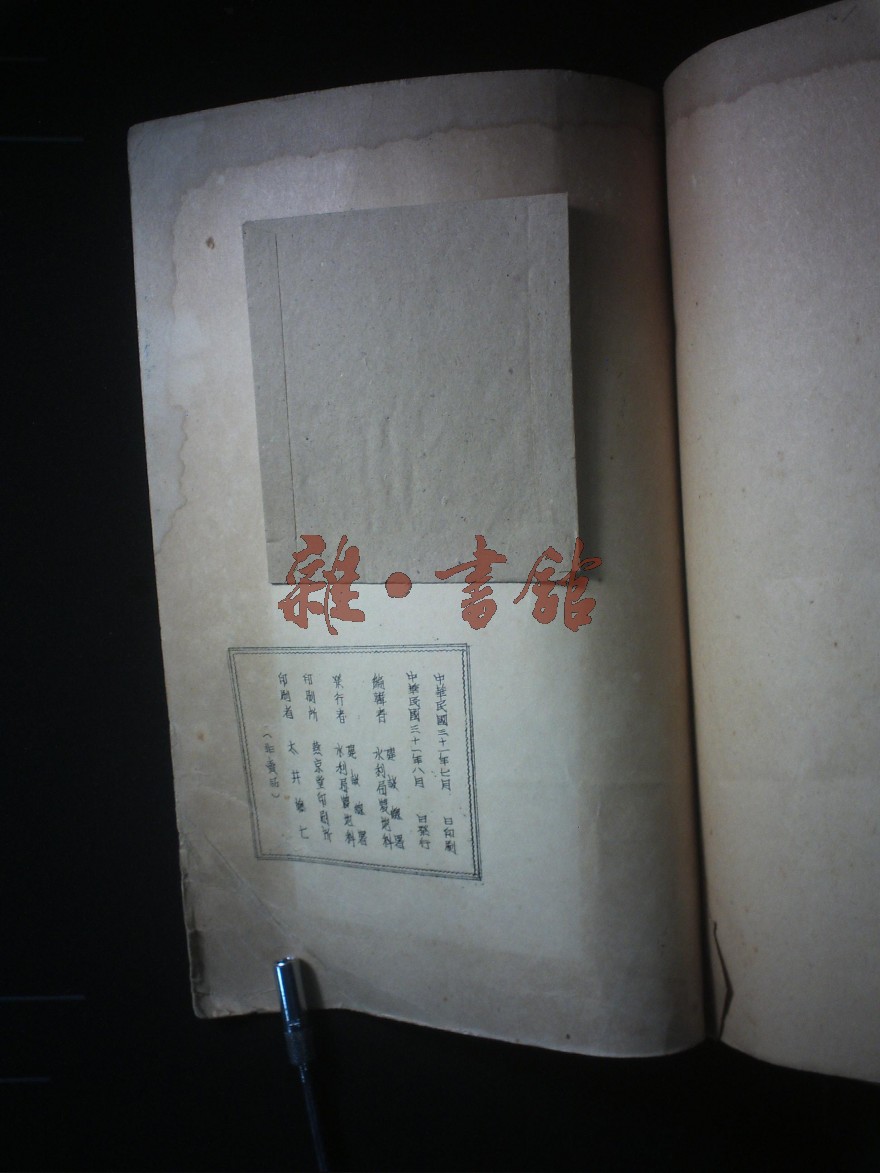 雜·書館
中華民國三十一年七月 日印刷
中華民國三十一年八月 日發行
編輯者 建設總署
水利局 科
發行者 建設總署
水利局 科
印刷所 燕京堂印刷所
印刷者 井 仁
(非賣品)